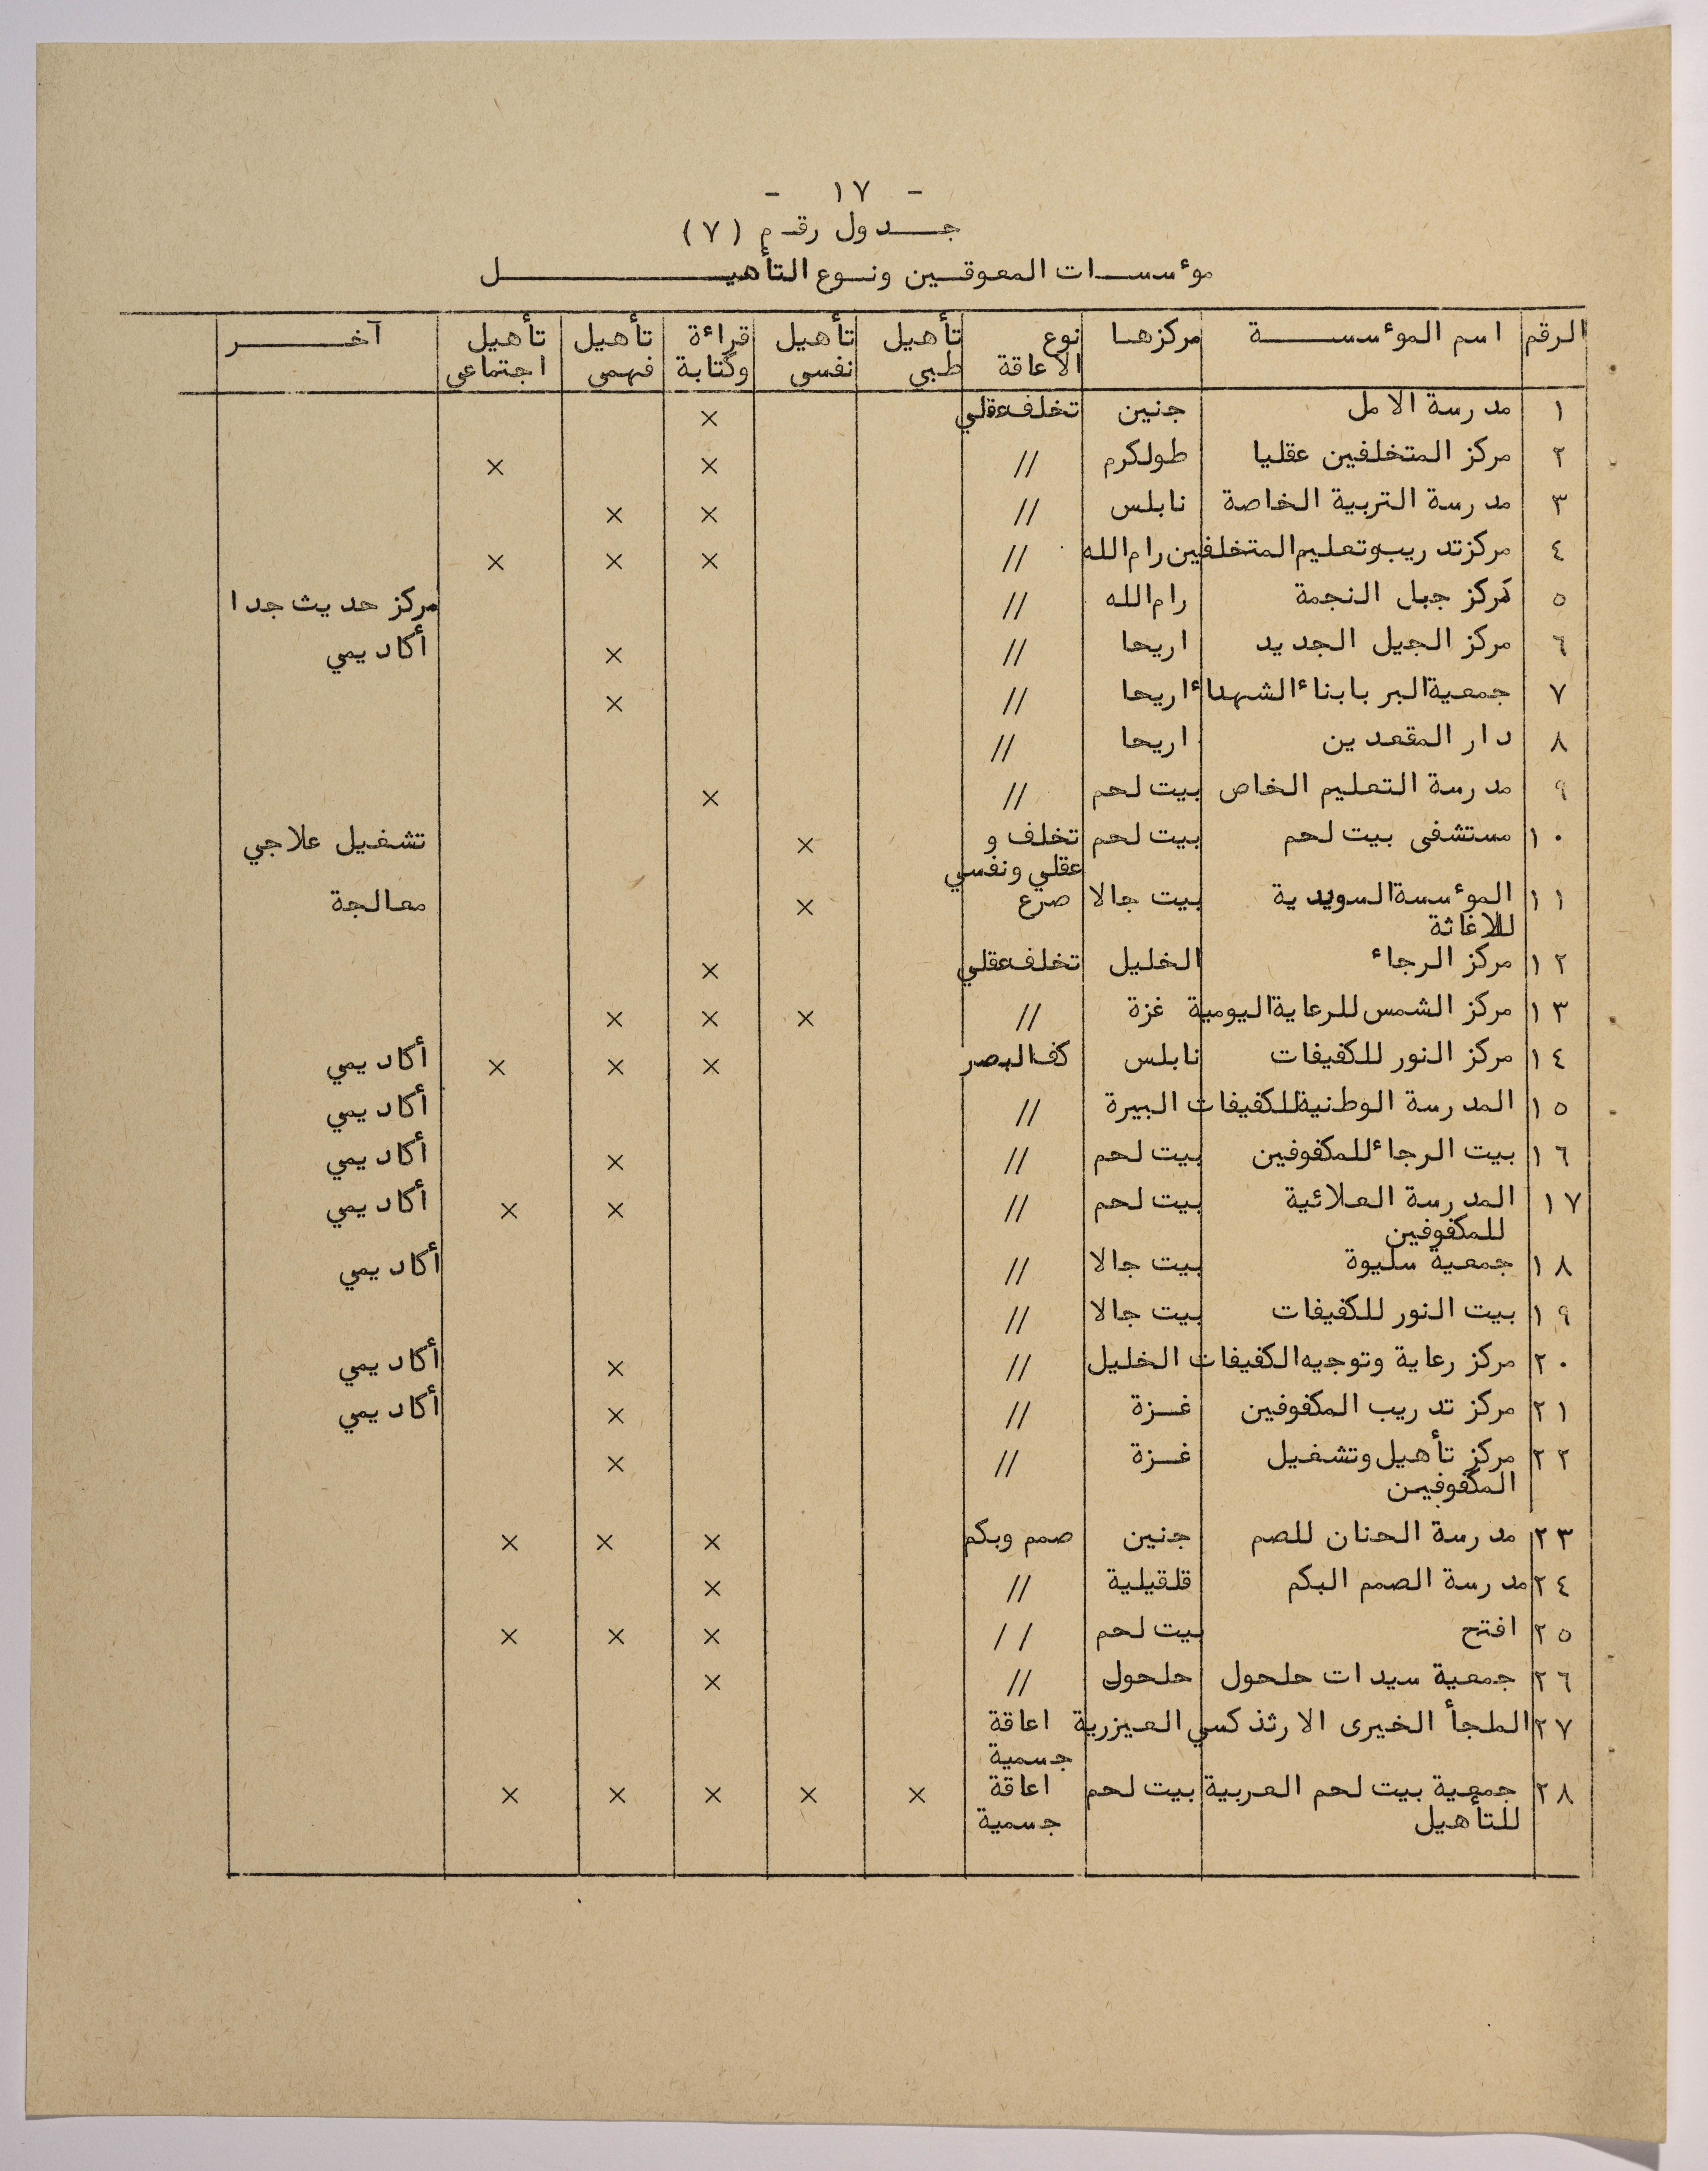 - ١٧ -
جدول رقم (٧)
مؤسسات المعوقين ونوع التأهيل
الرقم | اسم المؤسسة | مركزها | نوع الاعاقة | تأهيل طبي | تأهيل نفسي | قراءة وكتابة | تأهيل فهمي | تأهيل اجتماعي | آخر
١ | مدرسة الامل | جنين | تخلف عقلي | | | × | | |
٢ | مركز المتخلفين عقليا | طولكرم | // | | | × | | × |
٣ | مدرسة التربية الخاصة | نابلس | // | | | × | × | |
٤ | مركز تدريب وتعليم المتخلفين | رام الله | // | | | × | × | × |
٥ | مركز جبل النجمة | رام الله | // | | | | | | مركز حديث جدا
٦ | مركز الجيل الجديد | اريحا | // | | | | × | | أكاديمي
٧ | جمعية البر بابناء الشهداء | اريحا | // | | | | × | |
٨ | دار المقعدين | اريحا | // | | | | | |
٩ | مدرسة التعليم الخاص | بيت لحم | // | | | × | | |
١٠ | مستشفى بيت لحم | بيت لحم | تخلف و عقلي ونفسي | | × | | | | تشغيل علاجي
١١ | المؤسسة السويدية للاغاثة | بيت جالا | صرع | | × | | | | معالجة
١٢ | مركز الرجاء | الخليل | تخلف عقلي | | | × | | |
١٣ | مركز الشمس للرعاية اليومية | غزة | // | | × | × | × | |
١٤ | مركز النور للكفيفات | نابلس | كف البصر | | | × | × | × | أكاديمي
١٥ | المدرسة الوطنية للكفيفات | البيرة | // | | | | | | أكاديمي
١٦ | بيت الرجاء للمكفوفين | بيت لحم | // | | | | × | | أكاديمي
١٧ | المدرسة العلائية للمكفوفين | بيت لحم | // | | | | × | × | أكاديمي
١٨ | جمعية سليوة | بيت جالا | // | | | | | | أكاديمي
١٩ | بيت النور للكفيفات | بيت جالا | // | | | | | |
٢٠ | مركز رعاية وتوجيه الكفيفات | الخليل | // | | | | × | | أكاديمي
٢١ | مركز تدريب المكفوفين | غزة | // | | | | × | | أكاديمي
٢٢ | مركز تأهيل وتشغيل المكفوفين | غزة | // | | | | × | |
٢٣ | مدرسة الحنان للصم | جنين | صمم وبكم | | | × | × | × |
٢٤ | مدرسة الصمم البكم | قلقيلية | // | | | × | | |
٢٥ | افتح | بيت لحم | // | | | × | × | × |
٢٦ | جمعية سيدات حلحول | حلحول | // | | | × | | |
٢٧ | الملجأ الخيرى الارثذكسي | العيزرية | اعاقة جسمية | | | | | |
٢٨ | جمعية بيت لحم العربية للتأهيل | بيت لحم | اعاقة جسمية | × | × | × | × | × |